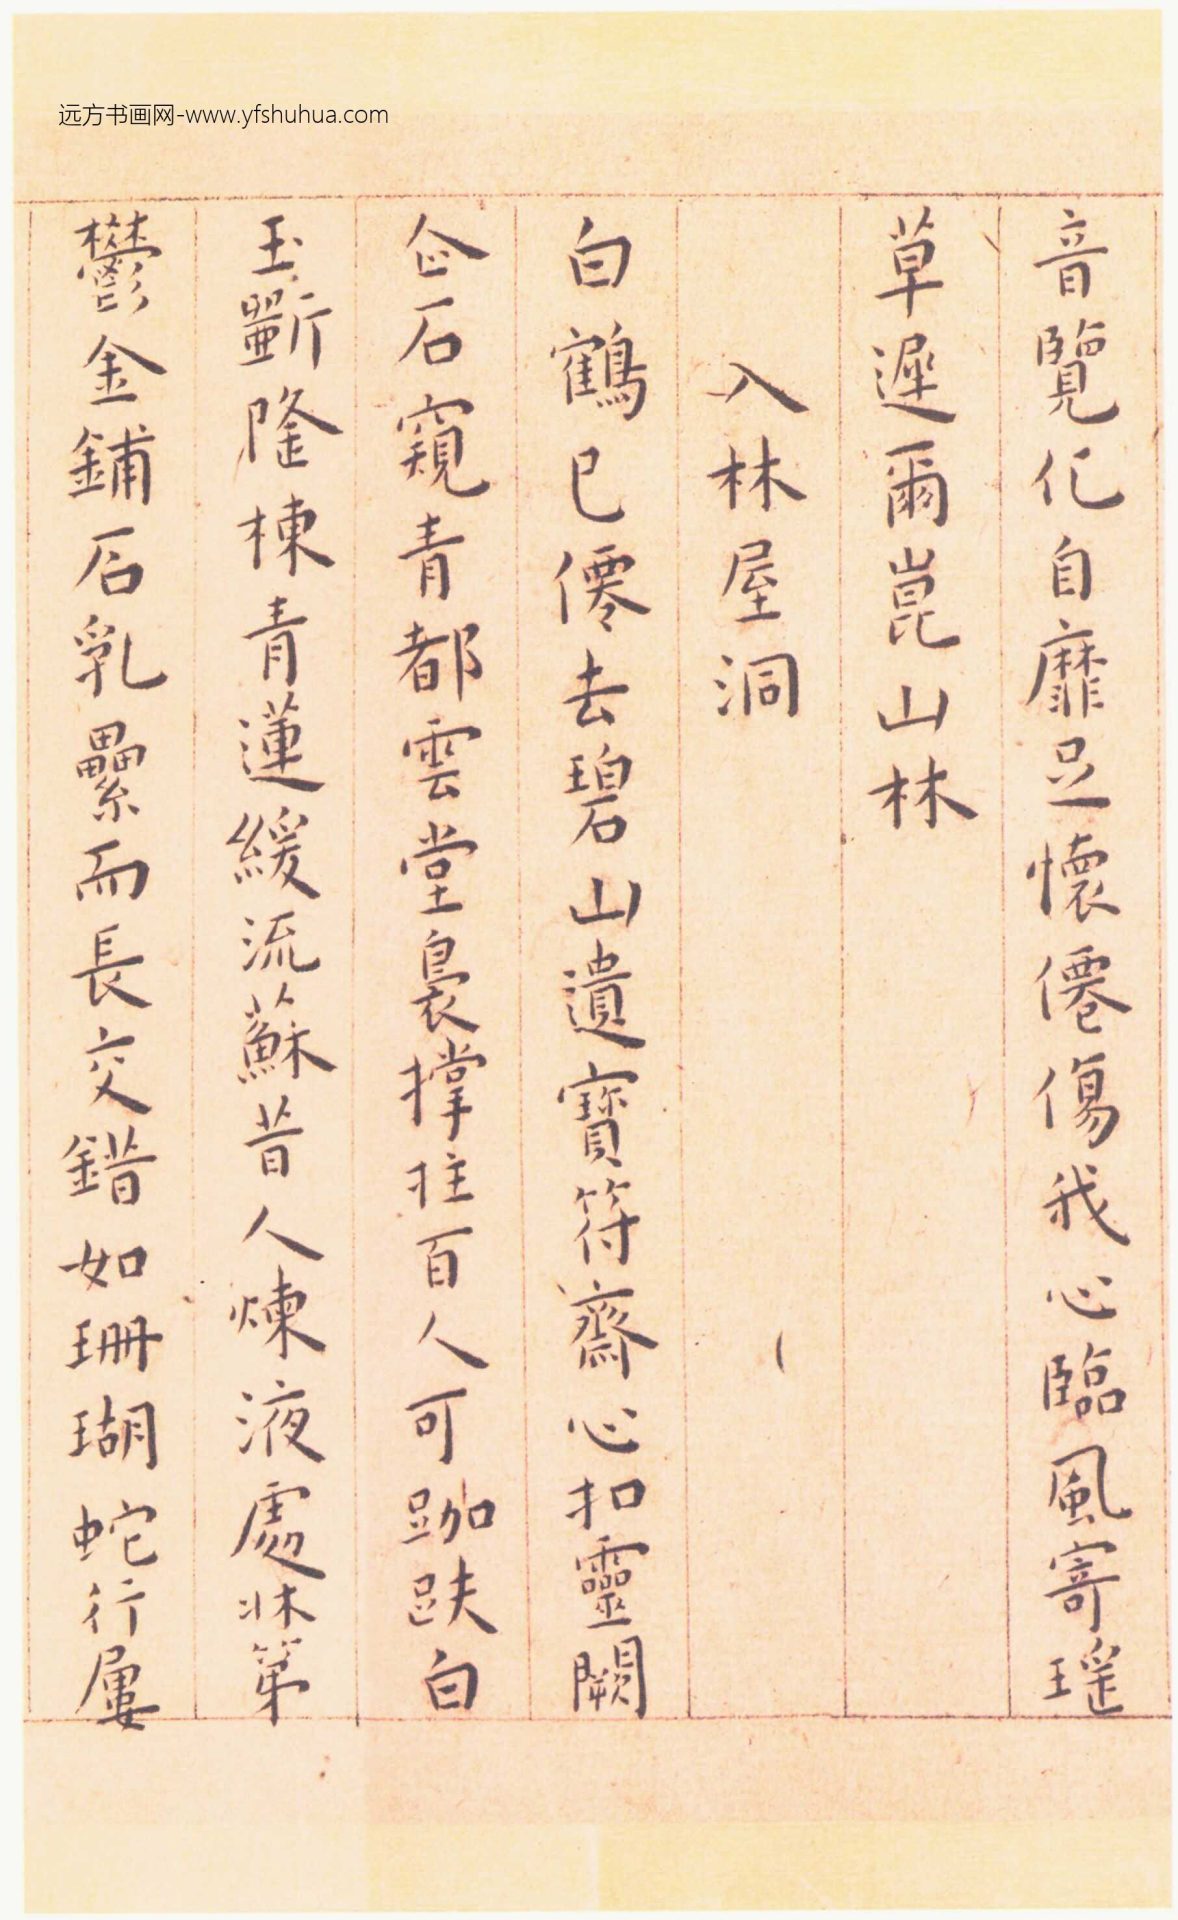 远方书画网-www.yfshuhua.com
音覽化自靡足懷僊傷我心臨風寄瑤
草遲爾崑山林
入林屋洞
白鶴已僊去碧山遺寶符齋心扣靈闕
企石窺青都雲堂裊撑拄百人可跏趺白
玉斲隆棟青蓮緩流蘇昔人煉液處牀第
鬱金鋪石乳纍而長交錯如珊瑚蛇行屢